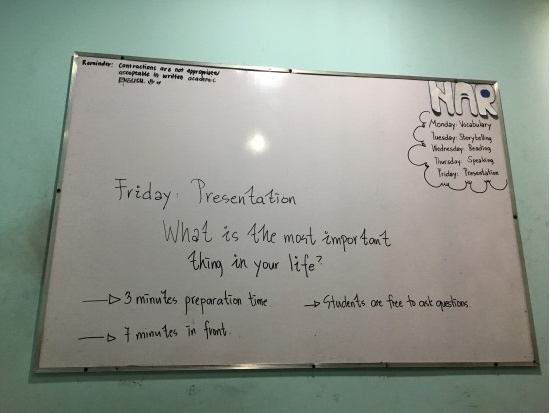 Reminder: Contractions are not appropriate/
acceptable in written academic
ENGLISH.
NAR
Monday: Vocabulary
Tuesday: Storytelling
Wednesday: Reading
Thursday: Speaking
Friday: Presentation
Friday: Presentation
What is the most important
thing in your life?
3 minutes preparation time
Students are free to ask questions.
7 minutes in front.